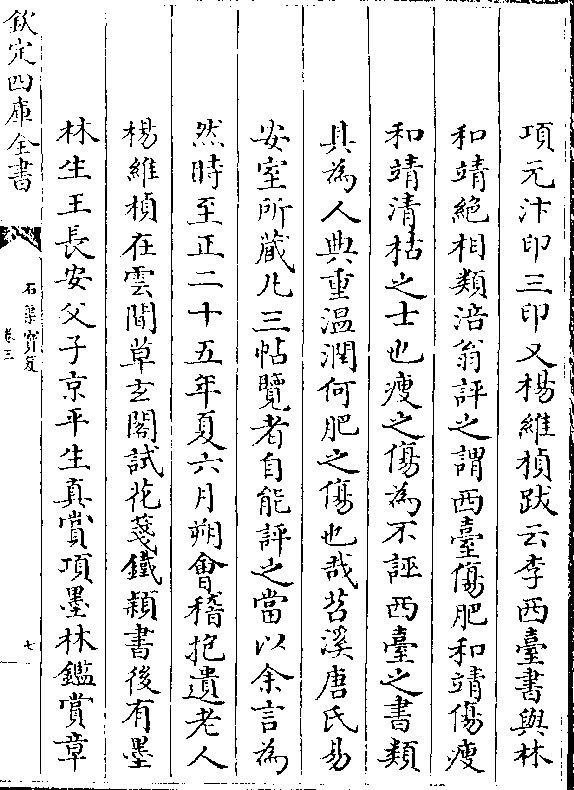 項元汴印三印又楊維楨跋云李西臺書與林
和靖絶相類涪翁評之謂西臺傷肥和靖傷瘦
和靖清枯之士也瘦之傷為不誣西臺之書類
其為人典重温潤何肥之傷也哉苕溪唐氏易
安室所藏凡三帖覽者自能評之當以余言為
然時至正二十五年夏六月朔會稽抱遺老人
楊維楨在雲間草玄閣試花箋鐵頴書後有墨
林生王長安父子京平生真賞項墨林鑑賞章
欽定四庫全書
石渠寶笈
卷三
七